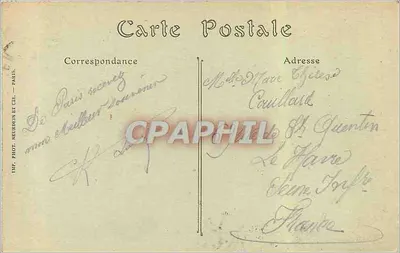 Carte Postale
Correspondance
Adresse
De Paris recevez
mon meilleur souvenir
Mlle Marie Thérèse
Couillard
St Quentin
Le Havre
Seine Infre
France
CPAPHIL
IMP. PHOT. NEURDEIN ET CIE. — PARIS.